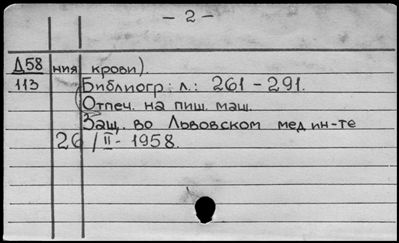 - 2 -
Д58 ния крови).
113 Библиогр: л.: 261 - 291.
(Отпеч. на пиш. маш.
Защ. во Львовском мед ин-те
26/II- 1958.